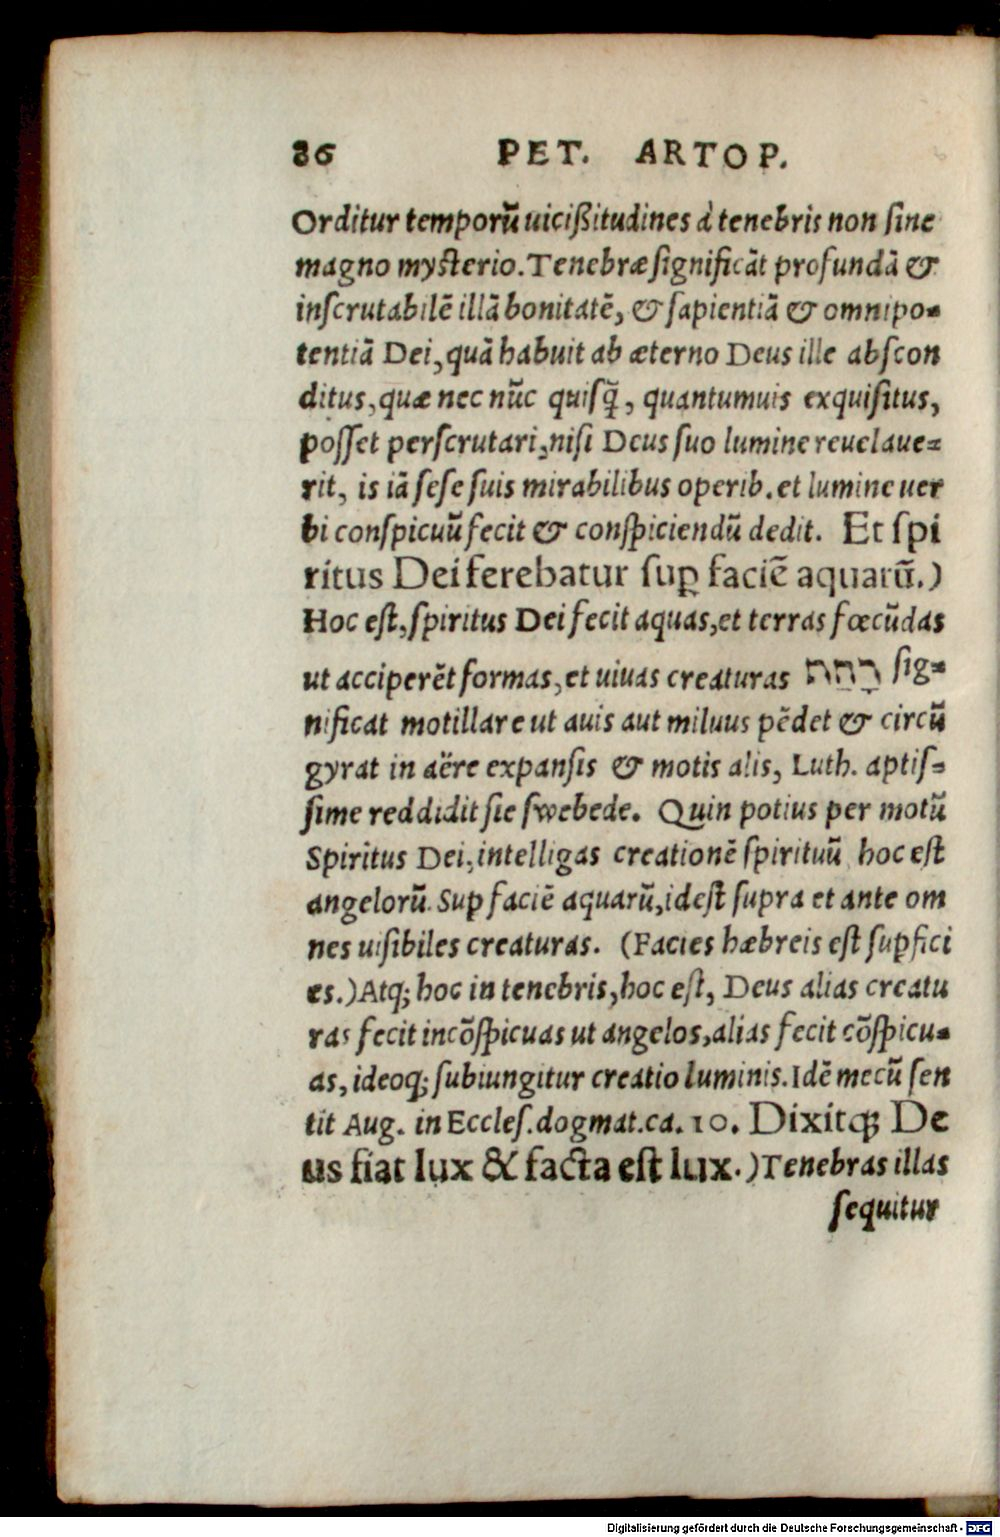 86 PET. ARTOP.
Orditur temporũ uicißitudines à tenebris non ſine
magno myſterio. Tenebræ ſignificãt profundã &
inſcrutabilẽ illã bonitatẽ, & ſapientiã & omnipo-
tentiã Dei, quã habuit ab æterno Deus ille abſcon
ditus, quæ nec nũc quiſq̃, quantumuis exquiſitus,
poſſet perſcrutari, niſi Deus ſuo lumine reuelaue-
rit, is iã ſeſe ſuis mirabilibus operib. et lumine uer
bi conſpicuũ fecit & conſpiciendũ dedit. Et ſpi
ritus Dei ferebatur ſuꝑ faciẽ aquarũ.)
Hoc eſt, ſpiritus Dei fecit aquas, et terras fœcũdas
ut acciperẽt formas, et uiuas creaturas רָהַת ſig-
nificat motillare ut auis aut miluus pẽdet & circũ
gyrat in aëre expanſis & motis alis, Luth. aptiſ-
ſime reddidit ſie ſwebede. Quin potius per motũ
Spiritus Dei, intelligas creationẽ ſpirituũ hoc eſt
angelorũ. Suꝑ faciẽ aquarũ, ideſt ſupra et ante om
nes uiſibiles creaturas. (Facies hæbreis eſt ſuꝑfici
es.) Atq; hoc in tenebris, hoc eſt, Deus alias creatu
ras fecit incõſpicuas ut angelos, alias fecit cõſpicu-
as, ideoq; ſubiungitur creatio luminis. Idẽ mecũ ſen
tit Aug. in Eccleſ. dogmat. ca. 10. Dixitq; De
us fiat lux & facta eſt lux.) Tenebras illas
ſequitur
Digitalisierung gefördert durch die Deutsche Forschungsgemeinschaft - DFG